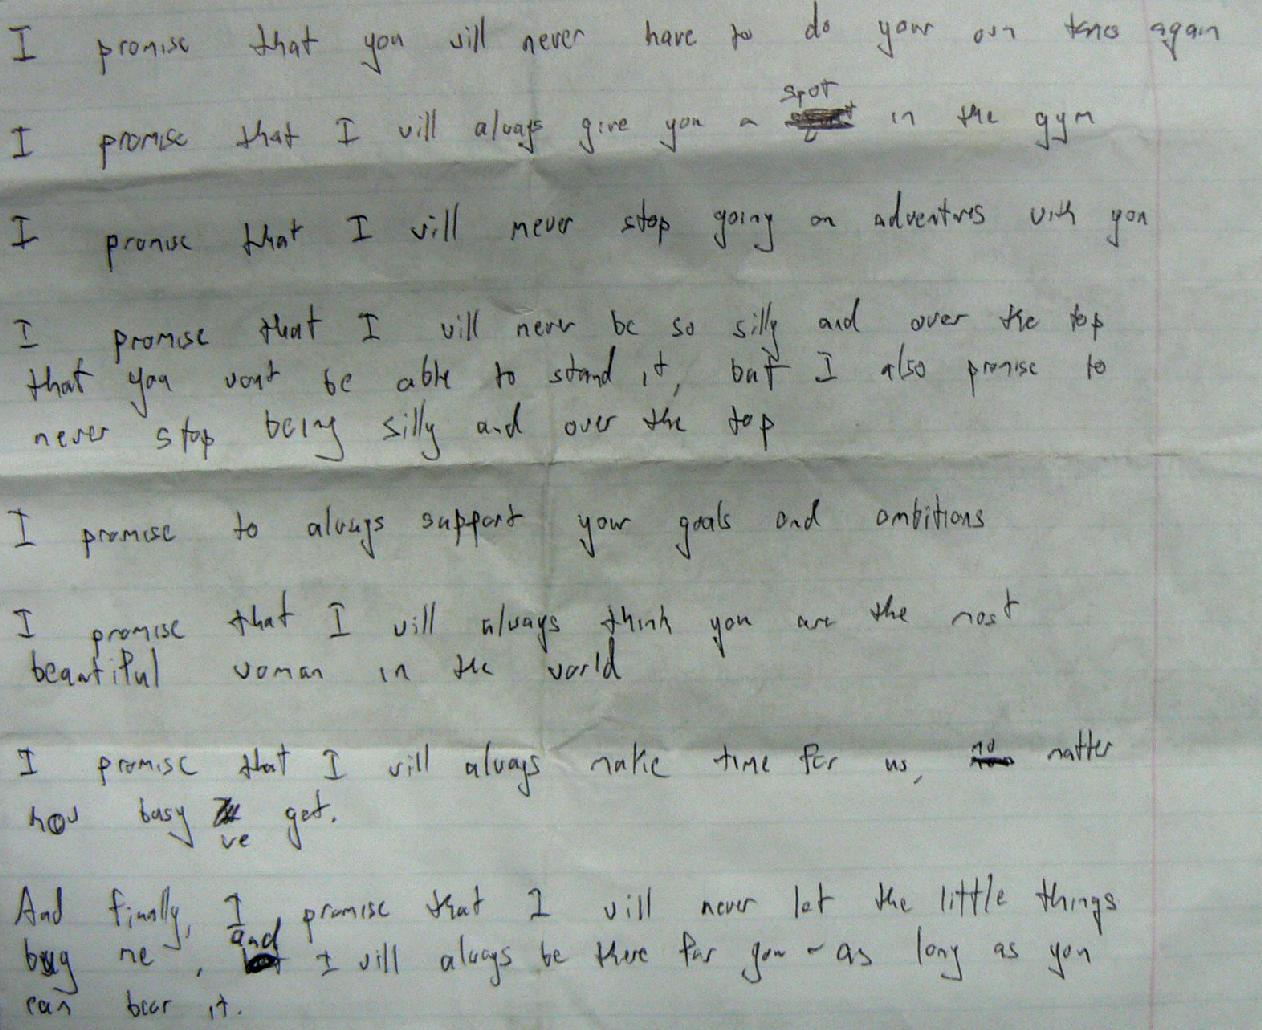 I promise that you will never have to do your own taxes again
I promise that I will always give you a spot in the gym
I promise that I will never stop going on adventures with you
I promise that I will never be so silly and over the top
that you wont be able to stand it, but I also promise to
never stop being silly and over the top
I promise to always support your goals and ambitions
I promise that I will always think you are the most
beautiful woman in the world
I promise that I will always make time for us, no matter
how busy we get.
And finally, I promise that I will never let the little things
bug me, and I will always be there for you - as long as you
can bear it.